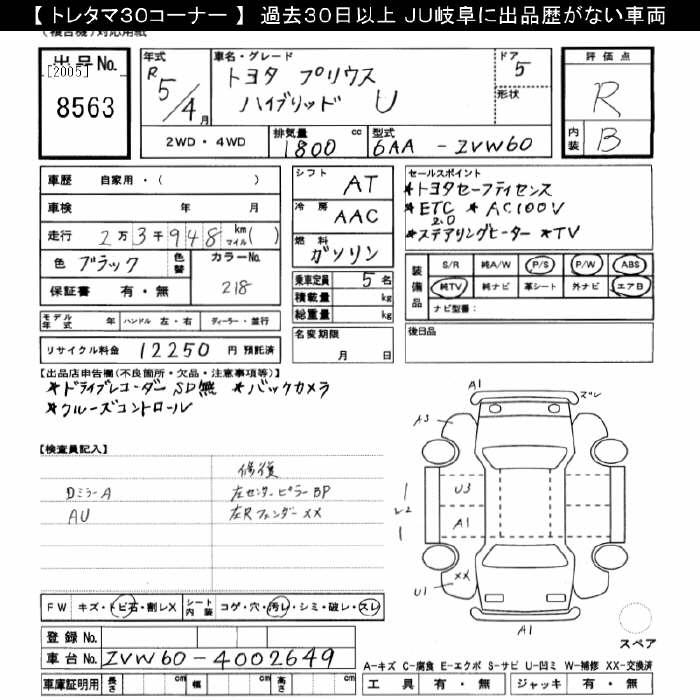 【 トレタマ30コーナー 】 過去30日以上 JU岐阜に出品歴がない車両
(複合機)対応用紙
出品No.
[2005]
8563
年式
R
5/4
月
車名・グレード
トヨタ プリウス
ハイブリッド U
ドア
5
形状
評価点
R
内装
B
2WD・4WD
排気量
1800
cc
型式
6AA - ZVW60
車歴 自家用・( )
車検 年 月
走行 2万3千948 km マイル( )
色 ブラック
色替
カラーNo.
218
保証書 有・無
シフト
AT
冷房
AAC
燃料
ガソリン
乗車定員 5 名
積載量 kg
総重量 kg
セールスポイント
*トヨタセーフティセンス
*ETC 2.0 *AC100V
*ステアリングヒーター *TV
装備品
S/R 純A/W P/S P/W ABS
純TV 純ナビ 革シート 外ナビ エアB
ナビ型番:
モデル年式 年 ハンドル 左・右 ディーラー・並行
名変期限
月 日
後日品
リサイクル料金 12250 円 預託済
【出品店申告欄(不良箇所・欠品・注意事項等)】
*ドライブレコーダー SD無 *バックカメラ
*クルーズコントロール
【検査員記入】
修復
Dミラー A 左センターピラー BP
AU 左Rフェンダー XX
A1
ズレ
A3
U3
A1
U2
XX
U1
A1
スペア
FW キズ・トビ石・割レX シート内装 コゲ・穴・汚レ・シミ・破レ・スレ
登録 No.
車台 No. ZVW60-4002649
車庫証明用 長さ cm 幅 cm 高さ cm
A-キズ C-腐食 E-エクボ S-サビ U-凹ミ W-補修 XX-交換済
工具 有・無 ジャッキ 有・無